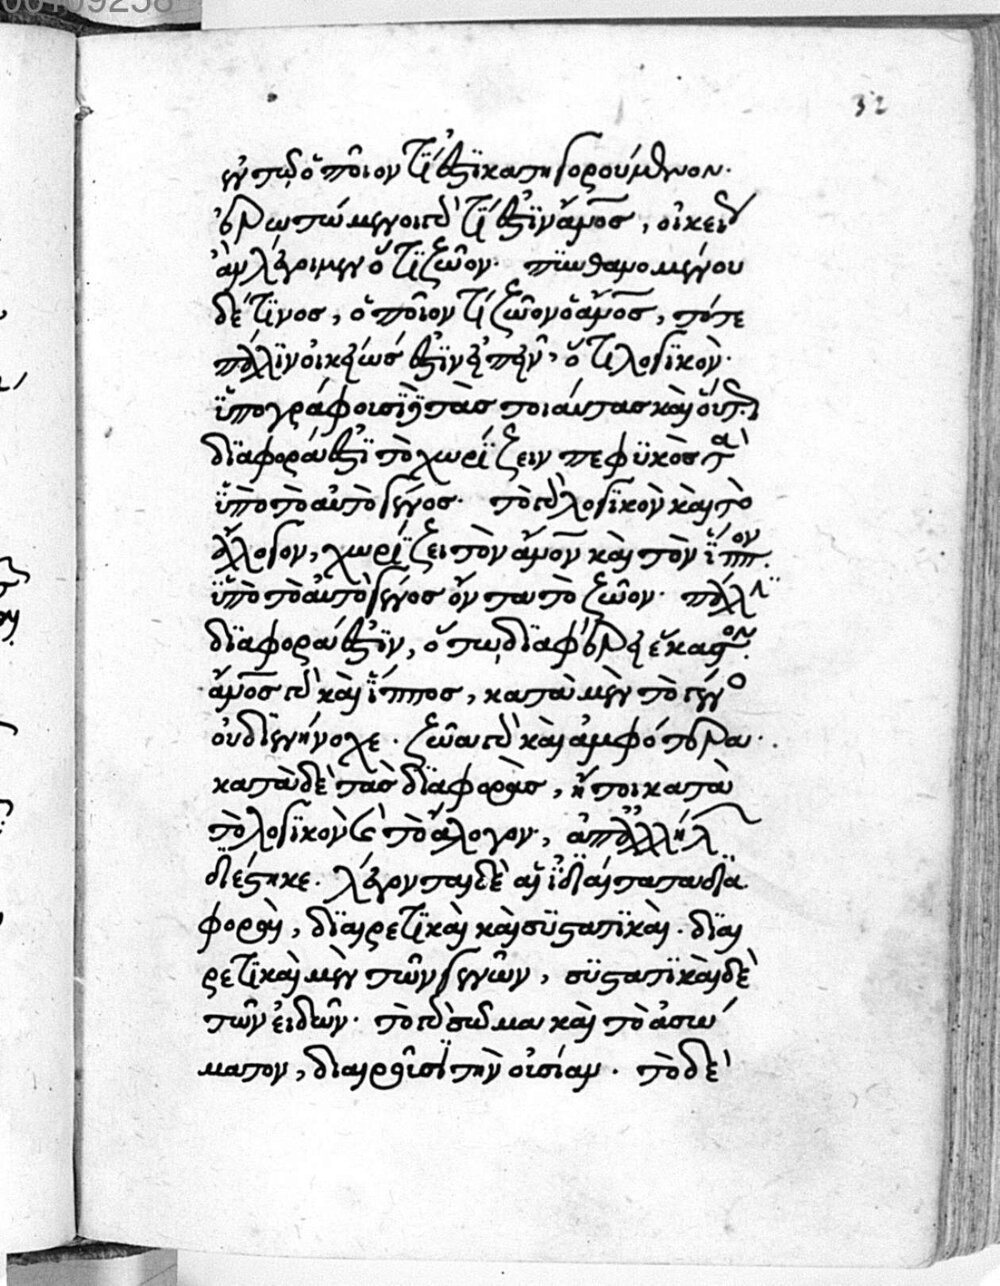 32
ἐν τῷ ὁποῖόν τί ἐστι κατηγορούμενον·
ἐρωτώμενοι γὰρ τί ἐστιν ἄνοσ, οἰκεί
ἂν λέγοιμεν ὅτι ζῶον· πυνθανομένου
δέ τινοσ, ὁποῖον τί ζῶον ὁ ἄνοσ, τότε
πάλιν οἰκείωσ ἐστὶν εἰπεῖν, ὅτι λογικὸν·
ὑπογράφουσι δὲ τὰσ τοιαύτασ καὶ οὕτω
διαφορά ἐστι τὸ χωρίζειν πεφυκὸσ τὰ
ὑπὸ τὸ αὐτὸ γένοσ· τὸ γὰρ λογικὸν καὶ τὸ
ἄλογον, χωρίζει τὸν ἄνον καὶ τὸν ἵππον
ὑπὸ τὸ αὐτὸ γένοσ ὄντα τὸ ζῶον· πάλιν
διαφορά ἐστιν, ὅτω διαφέρει ἕκαστον
ἄνοσ γὰρ καὶ ἵπποσ, κατὰ μὲν τὸ γένο
οὐ διενήνοχε· ζῶα γὰρ καὶ ἀμφότερα·
κατὰ δὲ τὰσ διαφορὰσ, ἤτοι κατὰ
τὸ λογικὸν καὶ τὸ ἄλογον, ἀπαλλήλ
διέστηκε· λέγονται δὲ αἱ ἰδιαίταται δια
φοραὶ, διαιρετικαὶ καὶ συστατικαὶ· διαι
ρετικαὶ μὲν τῶν γενῶν, συστατικαὶ δὲ
τῶν εἰδῶν· τὸ γὰρ σῶμα καὶ τὸ ἀσώ
ματον, διαιροῦσι τὴν οὐσίαν· τὸ δὲ